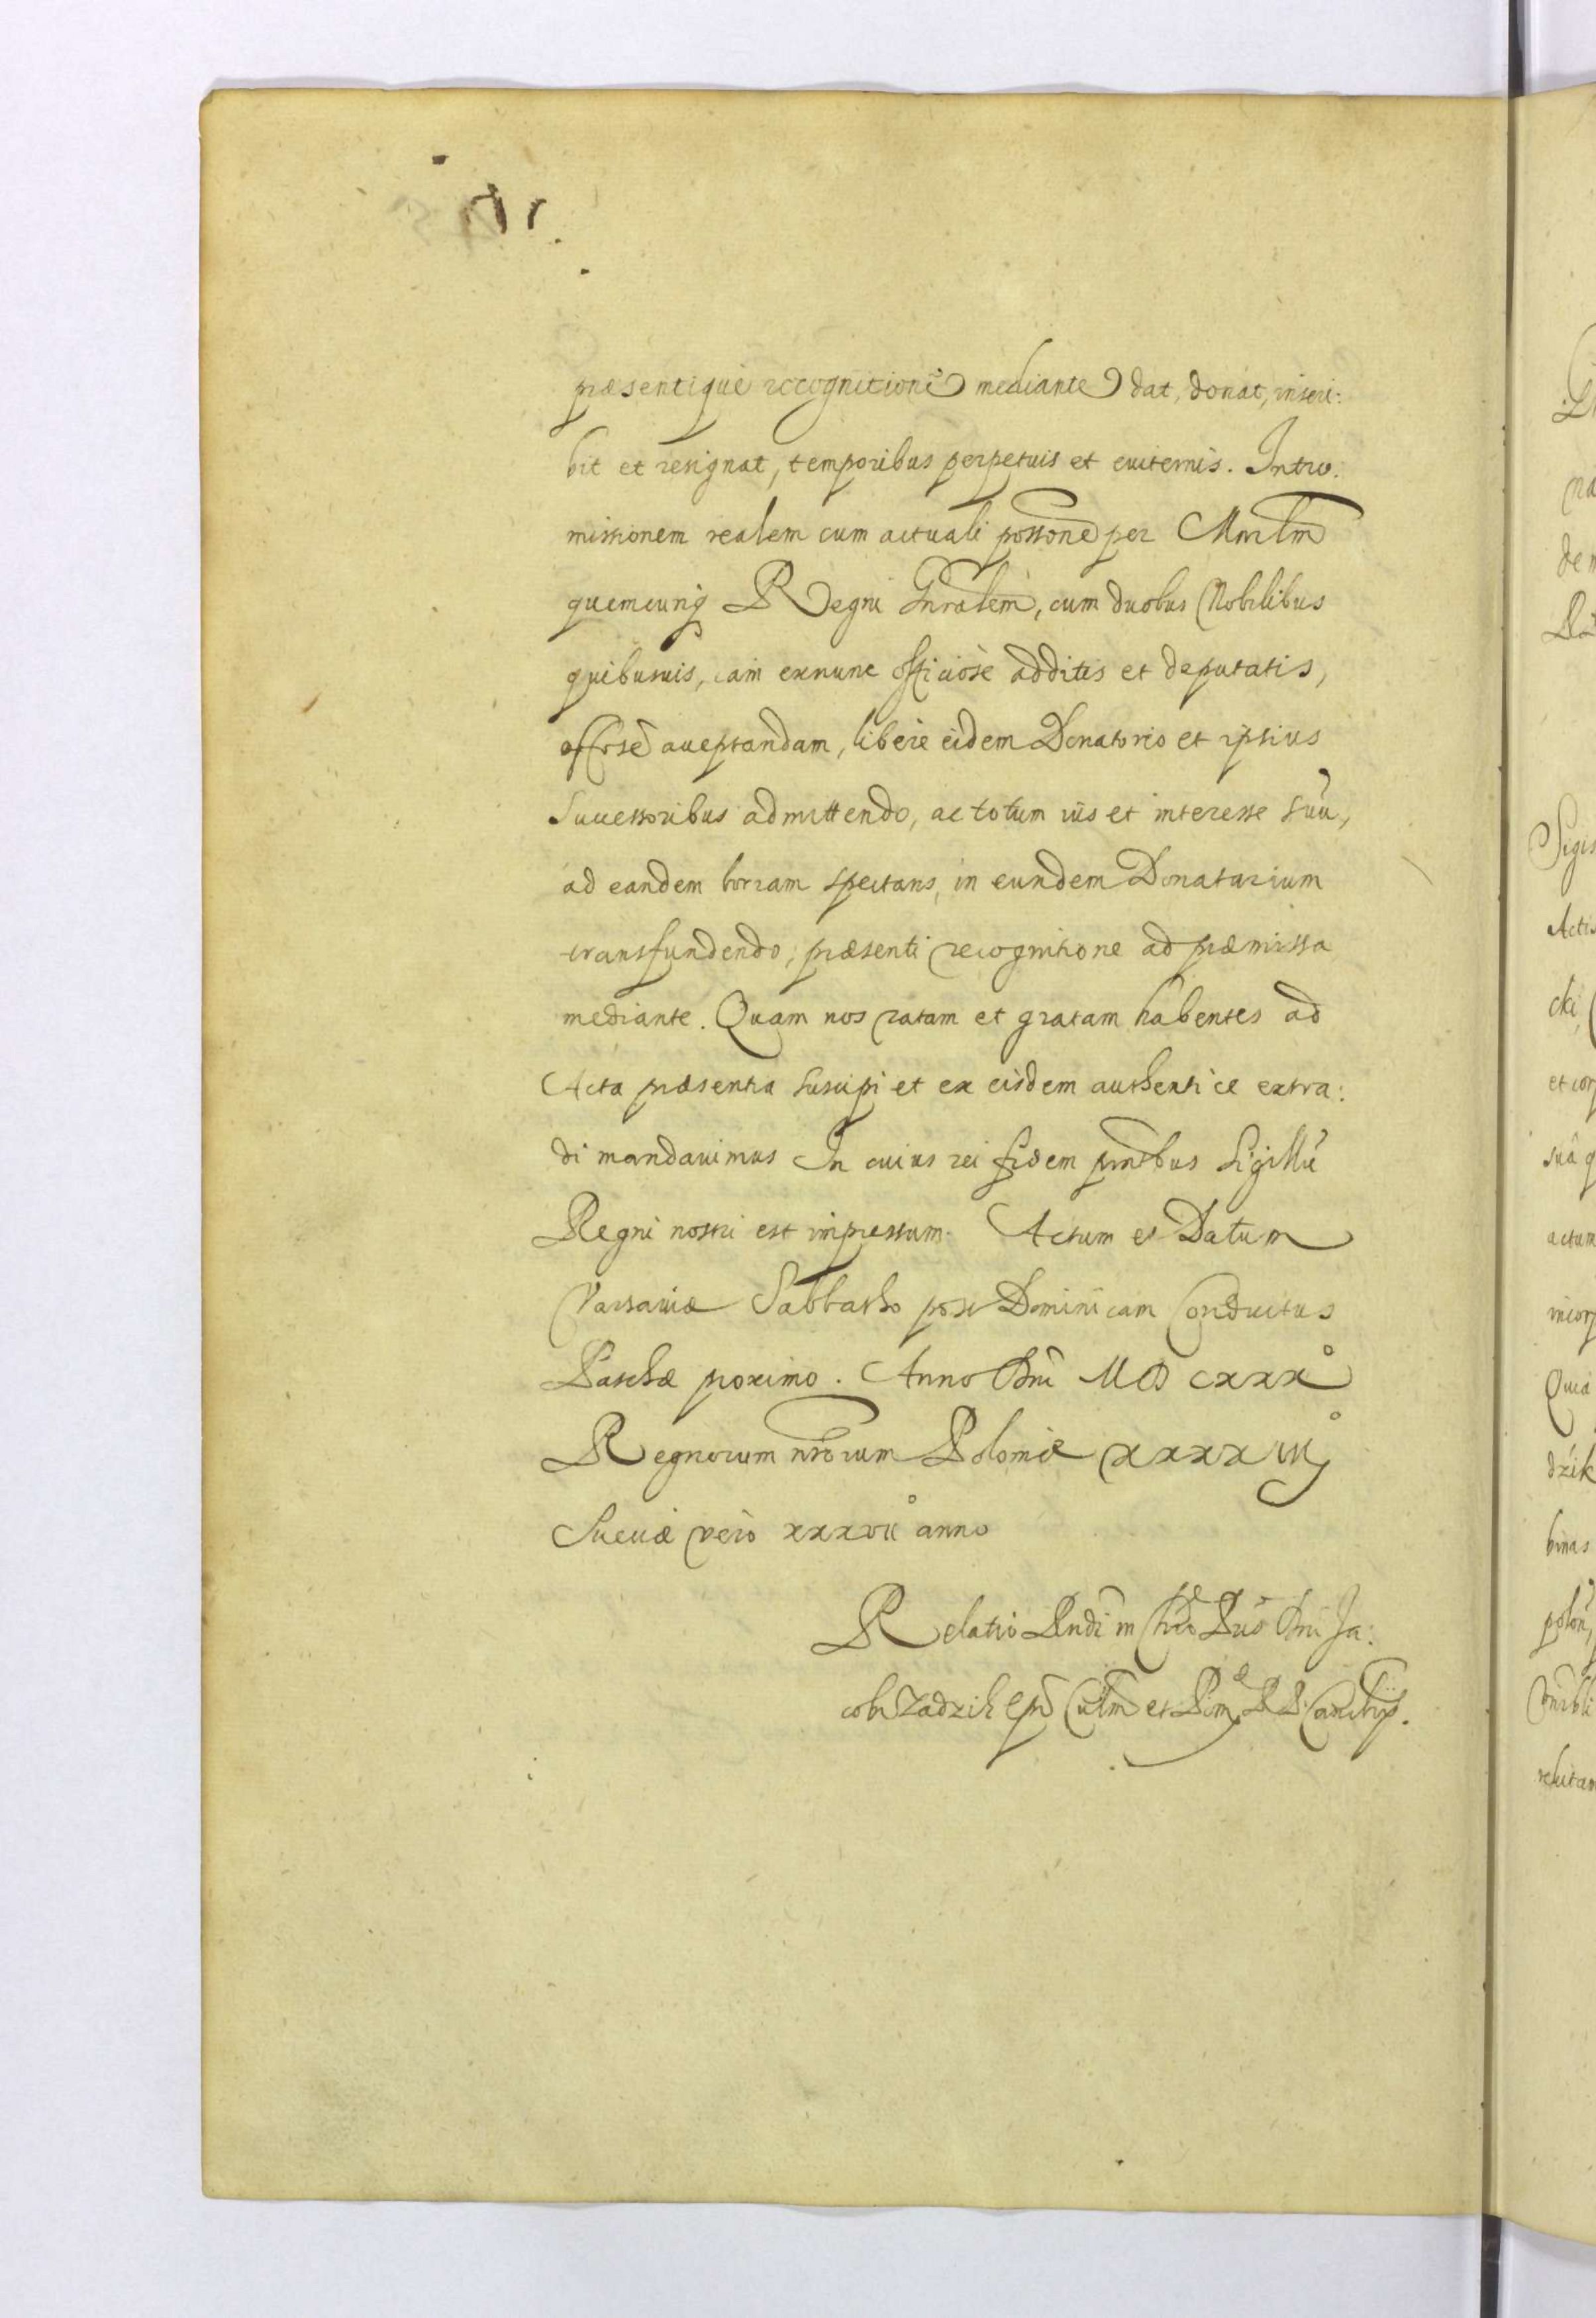 præsentique recognitione mediante dat, donat, inscri:
bit et resignat, temporibus perpetuis et euiternis. Intro:
missionem realem cum actuali possone per Mnrlm
quemcunq Regni Gnralem, cum duobus Nobilibus
quibusuis, iam exnunc officiose additis et deputatis,
offose acceptandam, libere eidem Donatorio et ipsius
Successoribus admittendo, ac totum ius et interesse suu,
ad eandem borram spectans, in eundem Donatarium
transfundendo, præsenti recognitione ad præmissa
mediante. Quam nos ratam et gratam habentes ad
Acta præsentia suscipi et ex eisdem authentice extra:
di mandauimus In cuius rei fidem pntibus Sigillũ
Regni nostri est impressum. Actum et Datum
Varsauiæ Sabbatho post Dominicam Conductus
Paschæ proximo. Anno Dni MD CXXX°
Regnorum nrorum Poloniæ XXXXIII°
Sueciæ vero xxxvii° anno
Relatio Rndi in Chro Pris Dni Ja:
cobi Zadzik Epi Culm et Pom R. P. Cancrij.